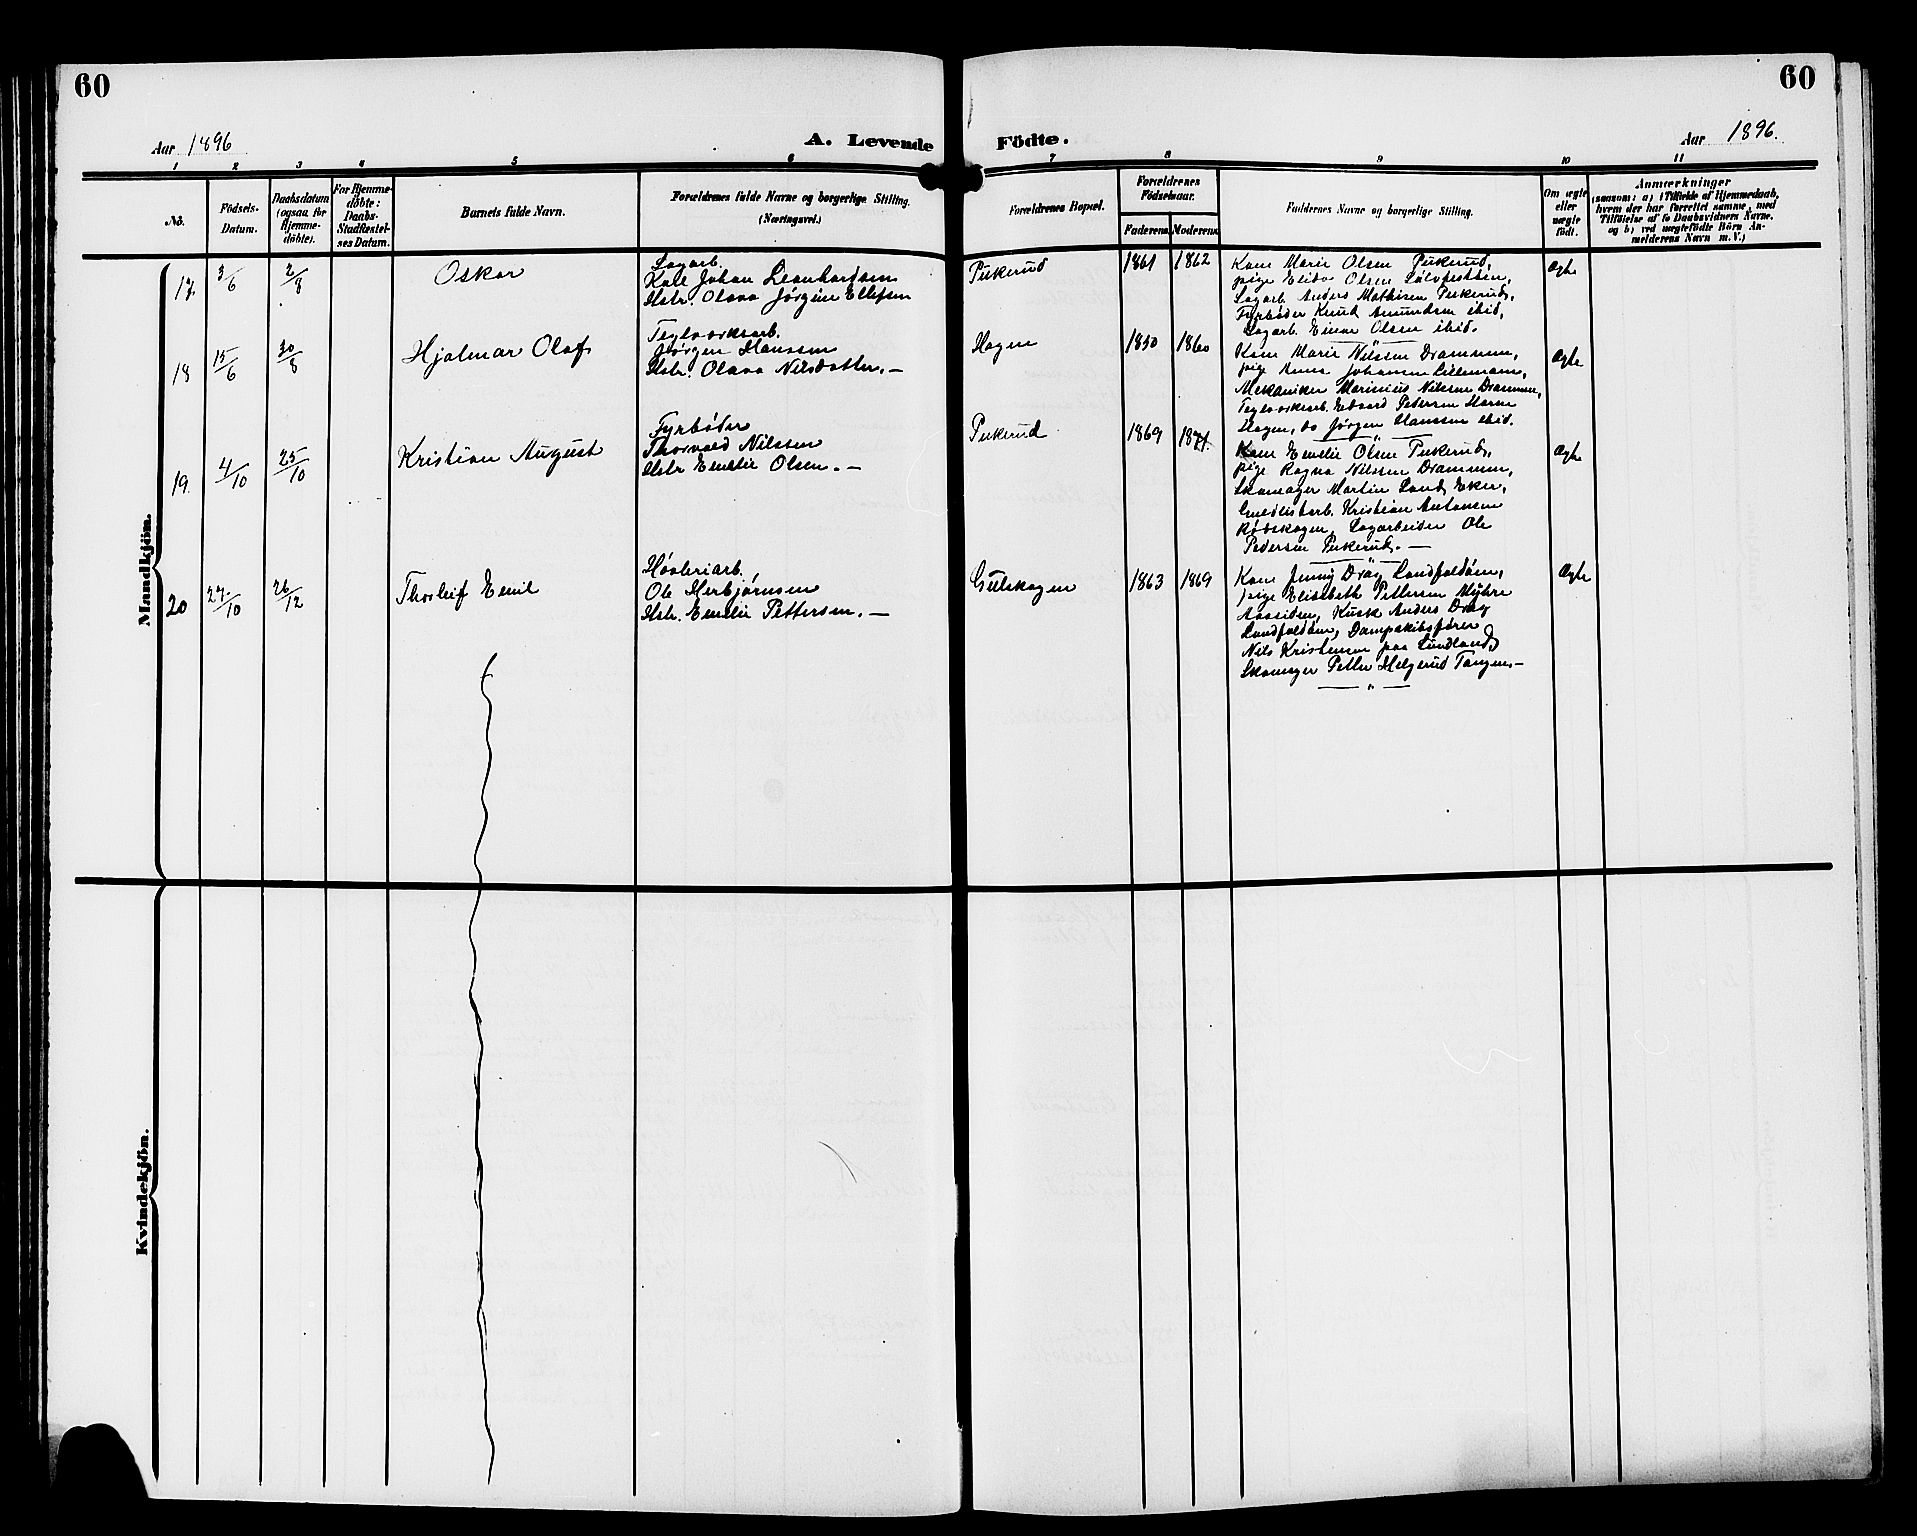 60
60
Aar 1896
A. Levende Födte.
Aar 1896.
1 2 3 4 5 6 7 8 9 10 11
No.
Födsels-
Datum.
Daabsdatum
(ogsaa for
Hjemme-
döbte).
For Hjemme-
döbte:
Daabs-
Stadfæstel-
ses Datum.
Barnets fulde Navn.
Forældrenes fulde Navne og borgerlige Stilling.
(Næringsvei.)
Forældrenes Bopæl.
Forældrenes
Födselsaar.
Faderens. Moderens.
Faddernes Navne og borgerlige Stilling.
Om ægte
eller
uægte
födt.
Anmærkninger
(saasom: a) i Tilfælde af Hjemmedaab,
hvem der har forrettet samme, med
Tilföielse af to Daabsvidners Navne.
og b) ved uægtefödte Börn An-
melderens Navn m. V.)
Mandkjön.
17. 3/6 2/8 Oskar
Sagarb.
Karl Johan Leonhardsen
Hstr. Olava Jørgine Ellefsen
Pukerud 1861 1862
Kone Marie Olsen Pukerud,
pige Elida Olsen Sølvfesten,
Sagarb. Anders Mathisen Pukerud,
Fyrbøder Knud Amundsen ibid,
Sagarb. Einar Olsen ibid.
Ægte
18 15/6 30/8 Hjalmar Olaf
Teglværksarb.
Jørgen Hanssen
Hstr. Olava Nilsdatter. —
Hagen 1850 1860
Kone Marie Nilssen Drammen,
pige Anna Johanne Lillemann,
Mekaniker Marinius Nilssen Drammen,
Teglværksarb. Edvard Pedersen Horne
Hagen, do Jørgen Hanssen ibid.
Ægte
19. 4/10 25/10 Kristian August
Fyrbøder
Thorvald Nilssen
Hstr Emelie Olsen. —
Pukerud 1869 1871.
Kone Emelie Olsen Pukerud,
pige Ragna Nilssen Drammen,
Skomager Martin Land Eker,
Guldlistarb. Kristian Antonsen
Rødskogen, Sagarbeider Ole
Pedersen Pukerud. —
Ægte
20 27/10 26/12 Thorleif Emil
Høvleriarb.,
Ole Herbjørnsen
Hstr. Emelie Pettersen. —
Gulskogen 1863 1869
Kone Jenny Drag Landfaldøen,
pige Elisabeth Pettersen Myhre
Aassiden, Kusk Anders Drag
Landfaldøen, Dampskibsfører
Nils Kristensen paa Sundland,
Skomager Petter Helgerud Tangen. —
Ægte
Kvindekjön.